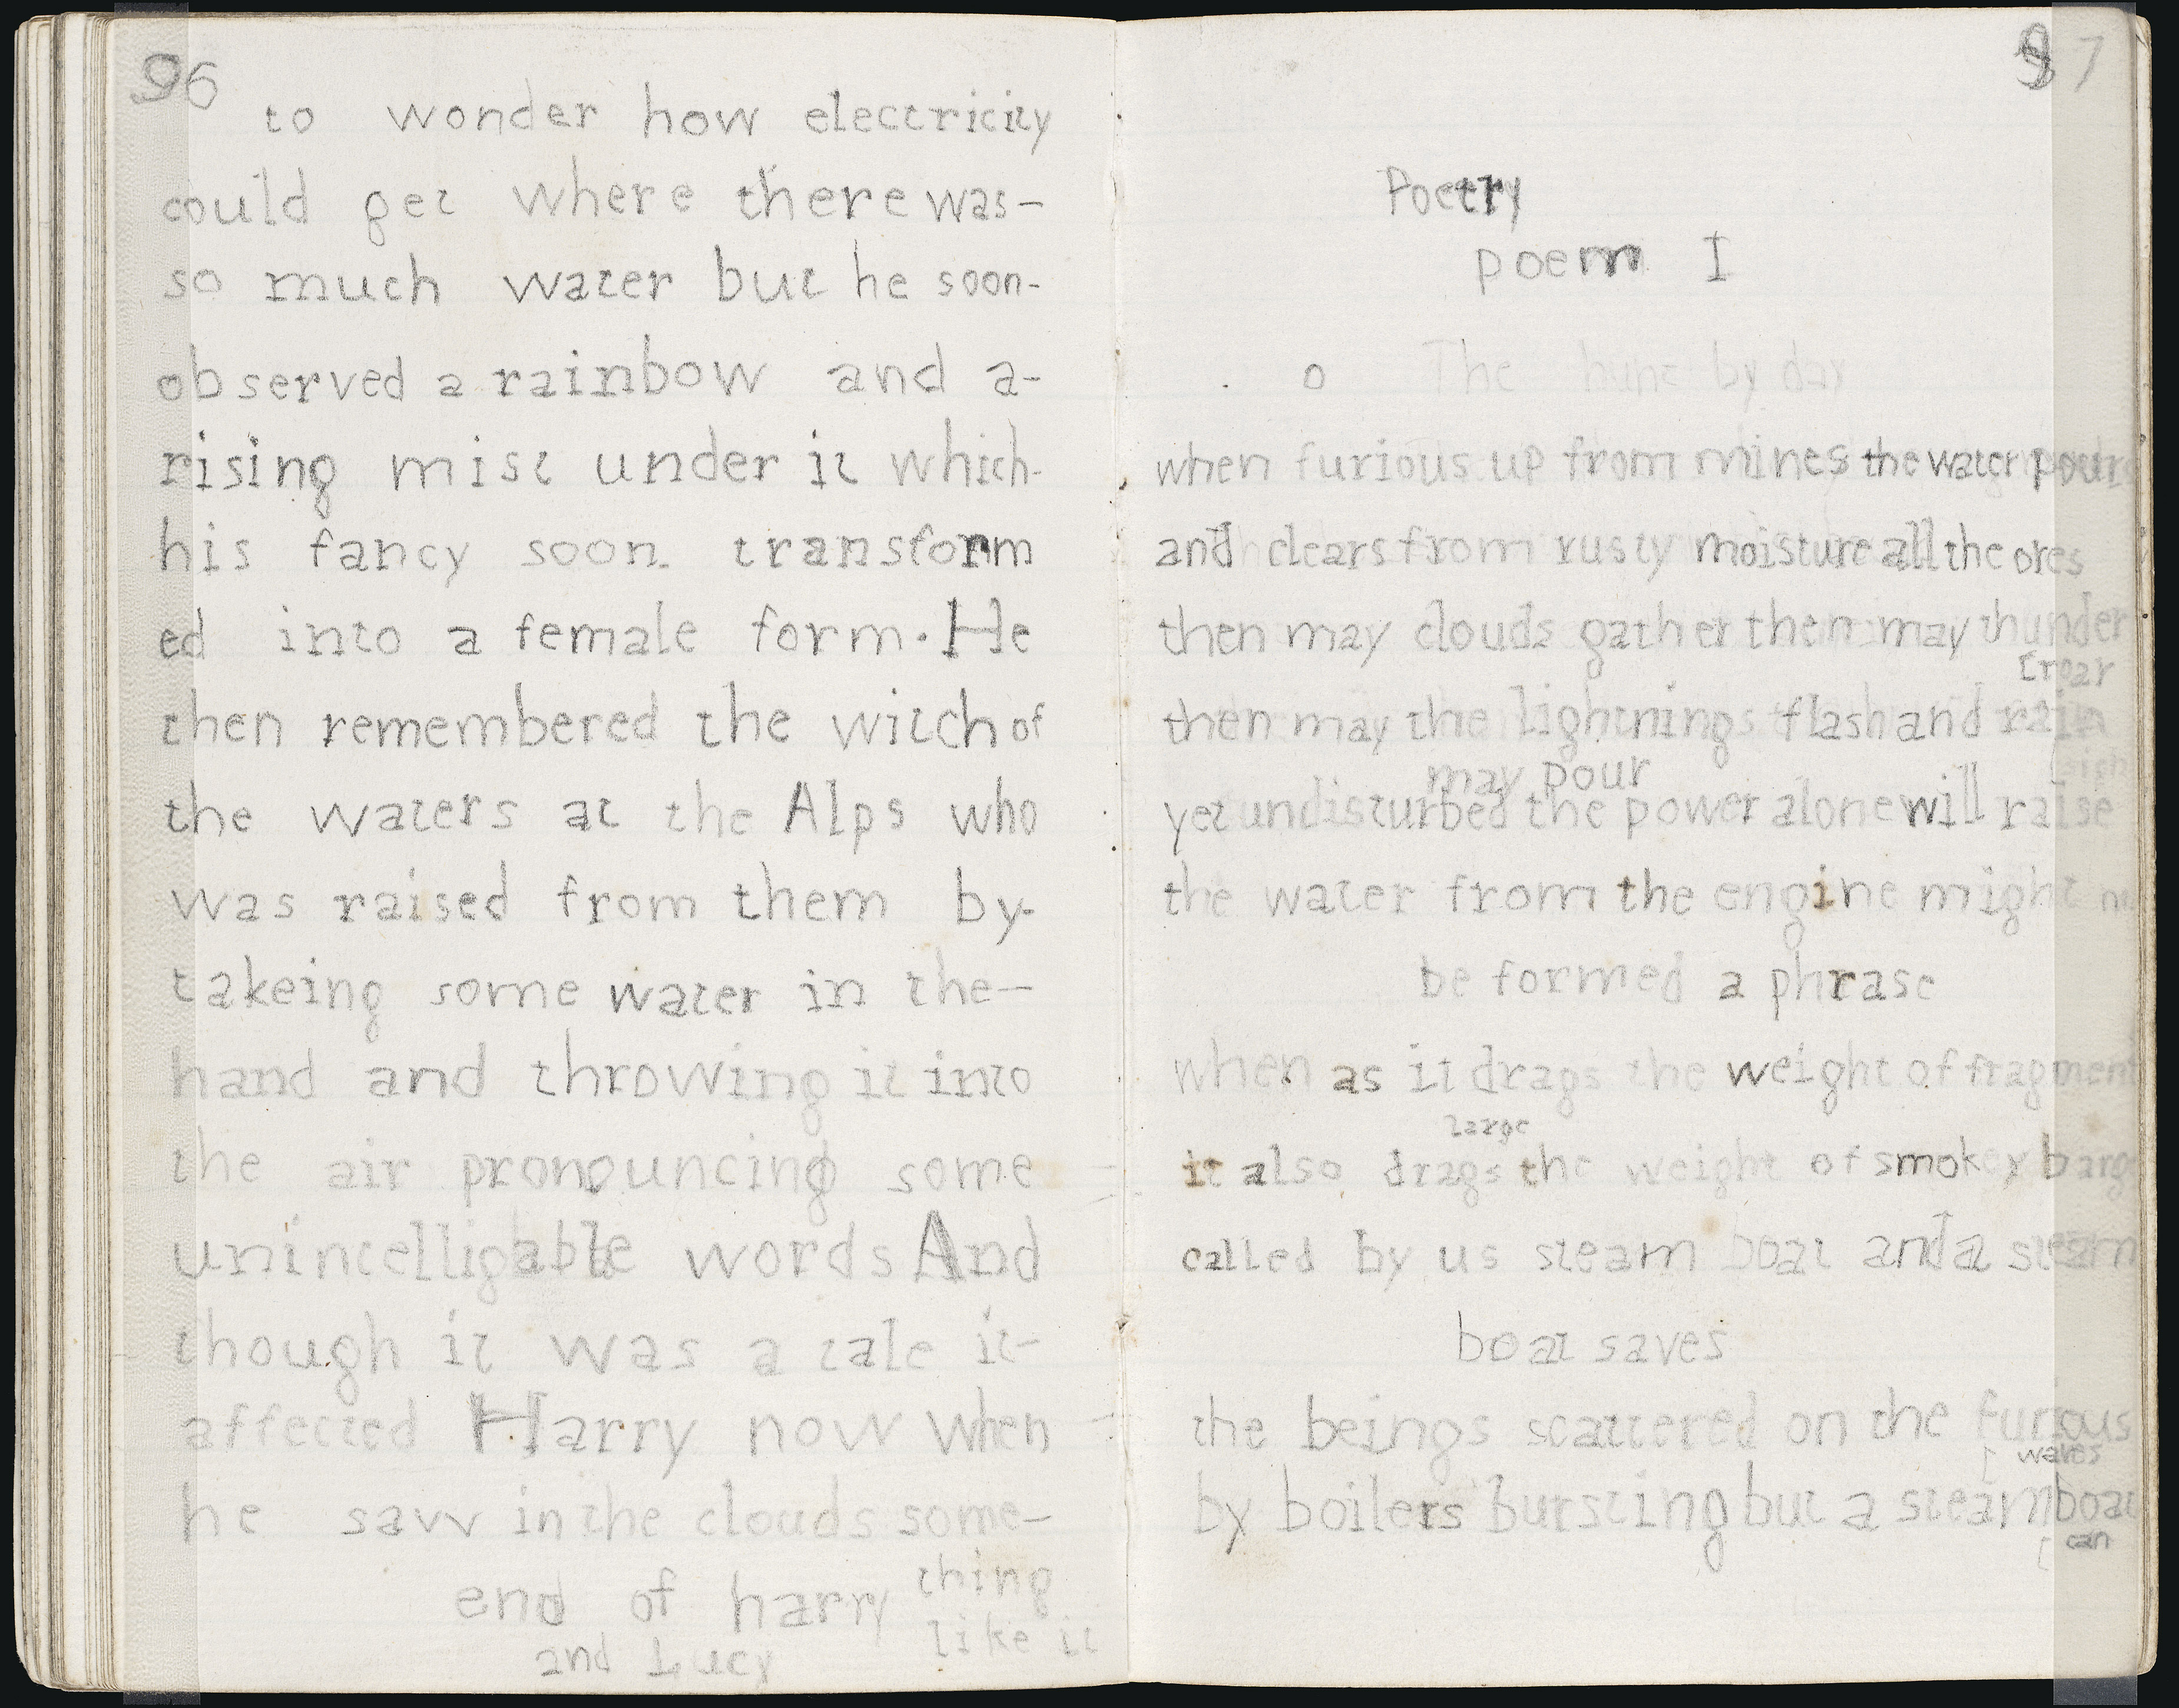 96
to wonder how electricity
could get where there was-
so much water but he soon-
observed a rainbow and a-
rising mist under it which-
his fancy soon transform
ed into a female form. He
then remembered the witch of
the waters at the Alps who
was raised from them by-
takeing some water in the-
hand and throwing it into
the air pronouncing some
unintelligable words And
though it was a tale it-
affected Harry now when
he saw in the clouds some-
thing
end of harry
like it
and Lucy
97
Poetry
poem I
o
when furious up from mines the water pours
and clears from rusty moisture all the ores
then may clouds gather then may thunder
[roar
then may the lightnings flash and rain
may pour
yet undisturbed the power alone will raise
the water from the engine might
be formed a phrase
when as it drags the weight of fragment
large
it also drags the weight of smokey barg
called by us steam boat and a steam
boat saves
the beings scattered on the furious
[waves
by boilers bursting but a steamboat
[can